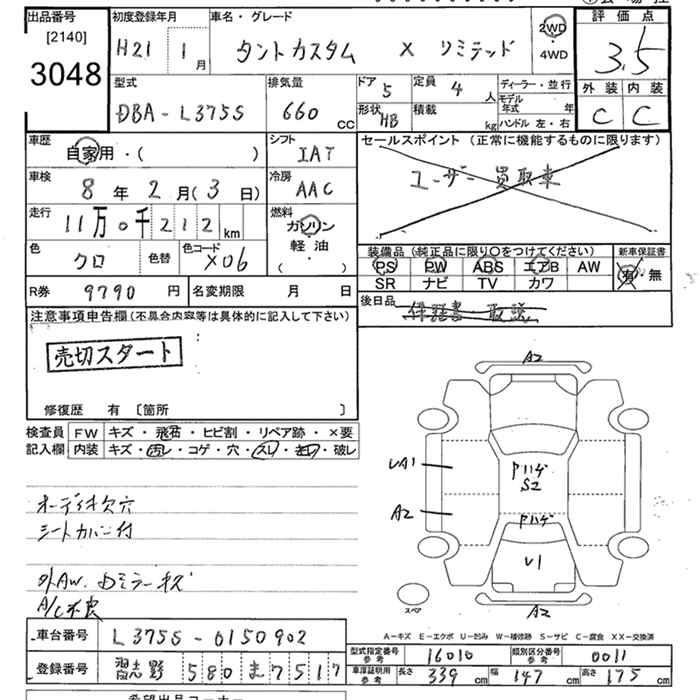 出品番号 初度登録年月 車名・グレード 2WD 評価点
[2140] H21 1月 タントカスタム X リミテッド 4WD 3.5
3048
型式 排気量 ドア 5 定員 4人 ディーラー・並行 外装 内装
DBA-L375S 660 CC 形状 HB 積載 kg モデル年式 年 C C
ハンドル 左・右
車歴 シフト セールスポイント (正常に機能するものに限ります)
自家用・( ) IAT
車検 冷房 ユーザー買取車
8年 2月(3日) AAC
走行 燃料
11万0千212km ガソリン
色 色替 色コード 軽油 装備品(純正品に限り○をつけてください) 新車保証書
クロ X06 ( ) PS PW ABS エアB AW 有・無
SR ナビ TV カワ
R券 9790円 名変期限 月 日 後日品 保証書 取説
注意事項申告欄(不具合内容等は具体的に記入して下さい)
売切スタート
修復歴 有 〔箇所 〕
検査員 FW キズ・飛石・ヒビ割・リペア跡・×要
記入欄 内装 キズ・汚レ・コゲ・穴・スレ・キレ・破レ
オーディオ欠穴
シートカバー付
外AW、Dミラーキズ
A/C不良
A2
UA1
A2
Pハゲ
S2
Pハゲ
U1
A2
スペア
A-キズ E-エクボ U-凹み W-補修跡 S-サビ C-腐食 XX-交換済
車台番号 L375S-0150902
型式指定番号 参考 16010 類別区分番号 参考 0011
登録番号 習志野 580 ま 7517
車庫証明用 参考 長さ 339cm 幅 147cm 高さ 175cm
希望出品コーナー